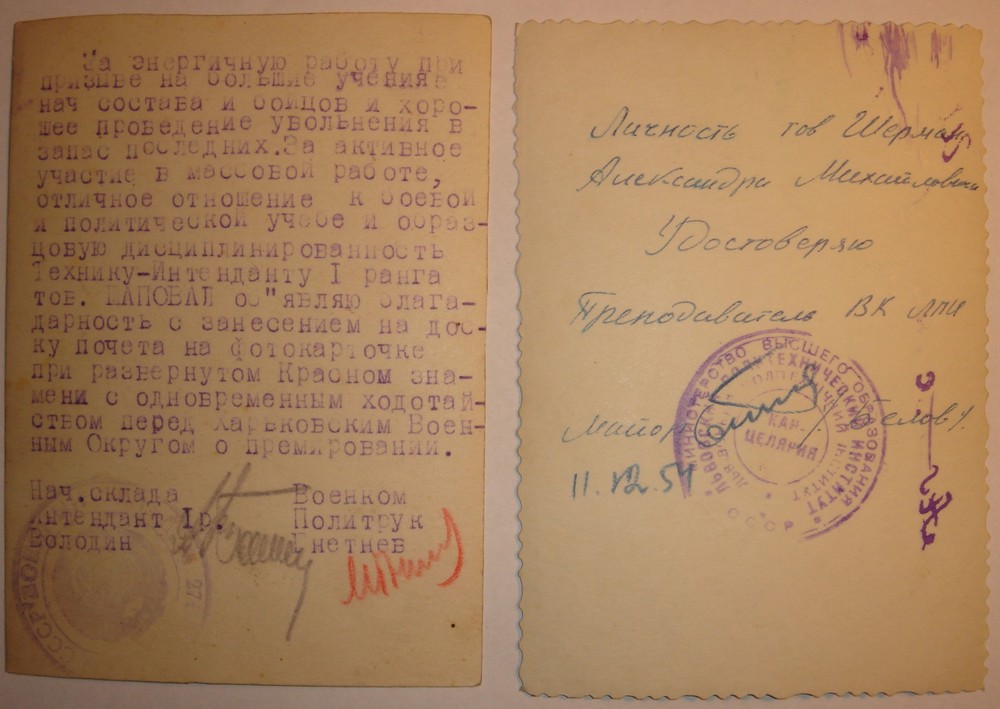 За энергичную работу при
призыве на большие учения
нач состава и бойцов и хоро-
шее проведение увольнения в
запас последних.За активное
участие в массовой работе,
отличное отношение к боевой
и политической учебе и образ-
цовую дисциплинированность
Технику-Интенданту I ранга
тов. ШАПОВАЛ об"являю благо-
дарность с занесением на дос-
ку почета на фотокарточке
при развернутом Красном зна-
мени с одновременным ходотай-
ством перед Харьковским Воен-
ным Округом о премировании.
Нач.склада Военком
Интендант Iр. Политрук
Володин Гнетнев
СССР
27
Личность тов Шерман
Александра Михайловича
Удостоверяю
Преподаватель ВК ЛПИ
Майор /Белов/
11.12.54
МИНИСТЕРСТВО ВЫСШЕГО ОБРАЗОВАНИЯ
СССР
ЛЬВОВСКИЙ ПОЛИТЕХНИЧЕСКИЙ ИНСТИТУТ
КАН-
ЦЕЛЯРИЯ